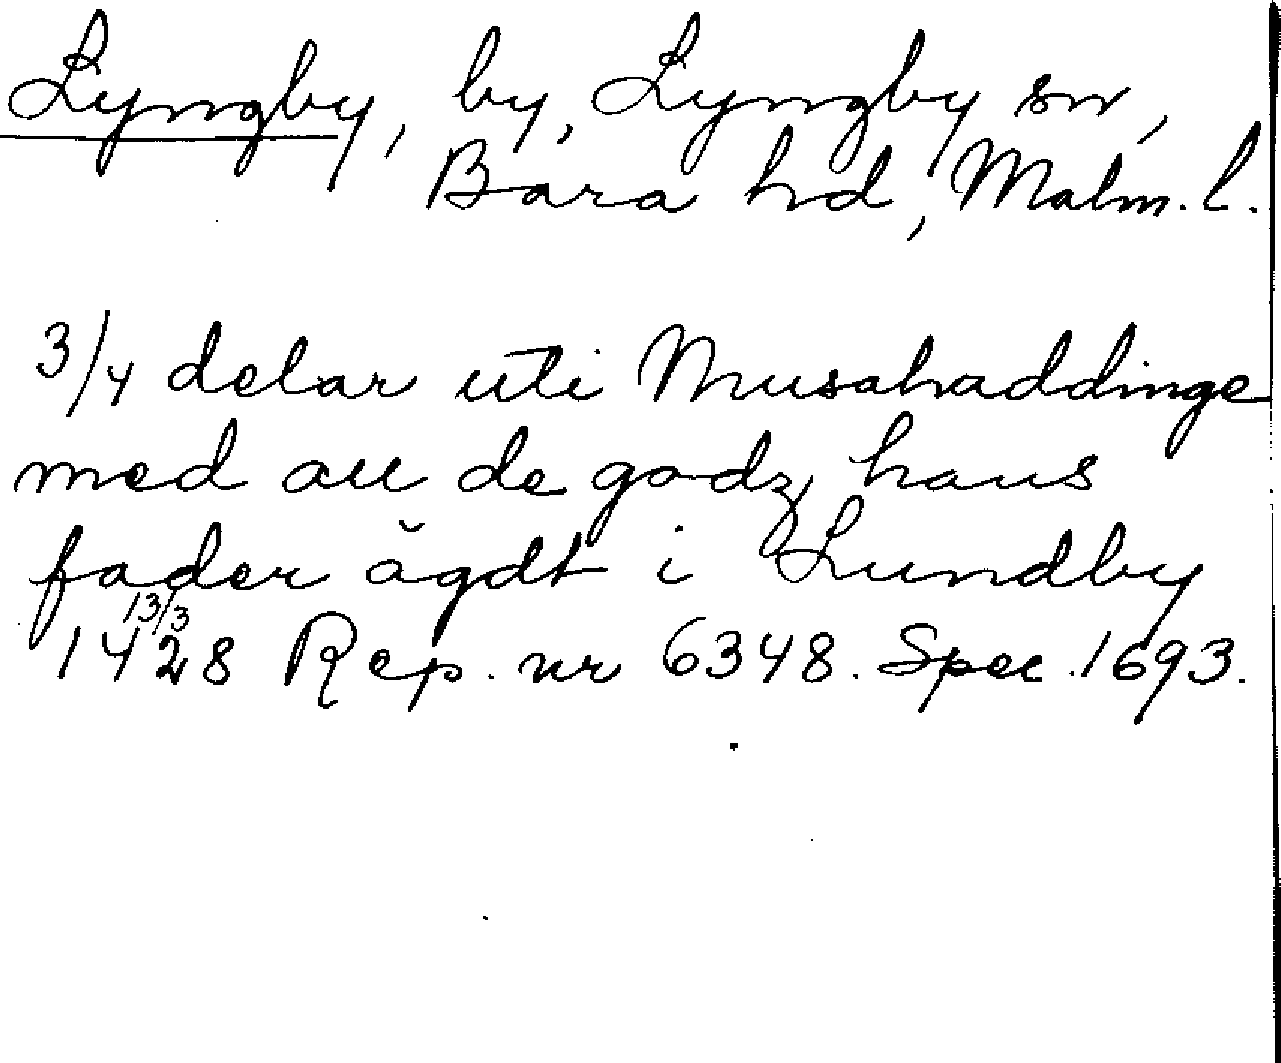 Lyngby, by, Lyngby sn,
Bara hd, Malm. l.
3/4 delar uti Musahaddinge
med all de godz hans
fader ägdt i Lundby
13/3
1428 Rep. nr 6348. Spec. 1693.